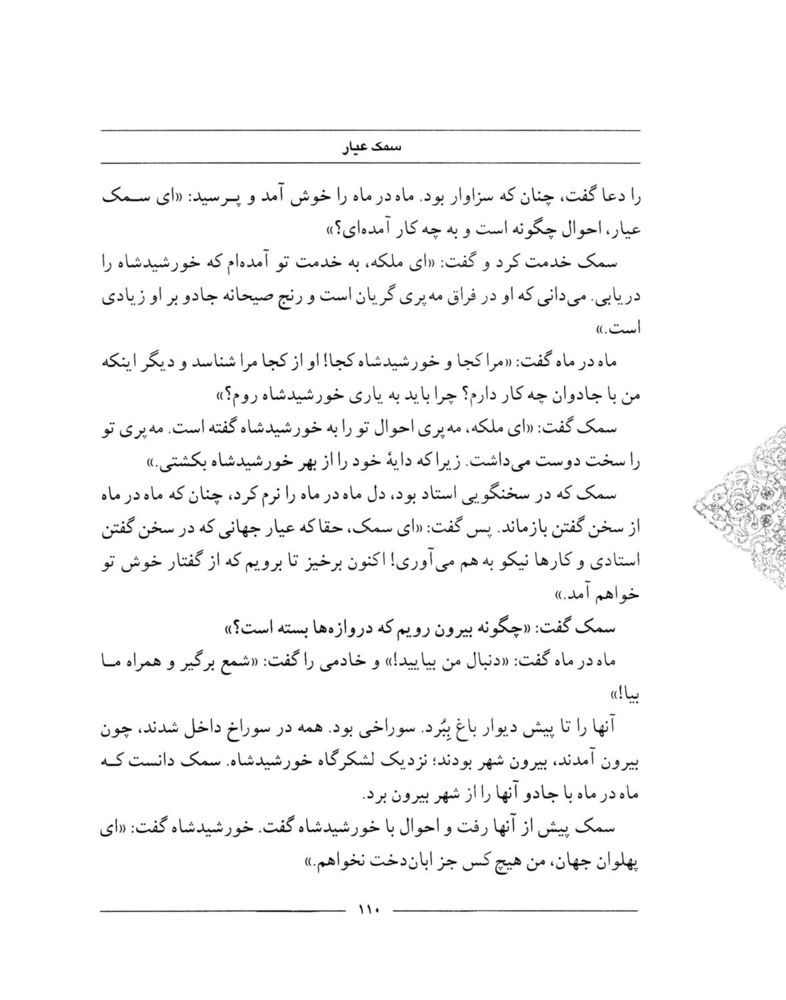 سمک عیار
را دعا گفت، چنان که سزاوار بود. ماه در ماه را خوش آمد و پرسید: «ای سمک
عیار، احوال چگونه است و به چه کار آمده‌ای؟»
سمک خدمت کرد و گفت: «ای ملکه، به خدمت تو آمده‌ام که خورشیدشاه را
دریابی. می‌دانی که او در فراق مه‌پری گریان است و رنج صیحانه جادو بر او زیادی
است.»
ماه در ماه گفت: «مرا کجا و خورشیدشاه کجا! او از کجا مرا شناسد و دیگر اینکه
من با جادوان چه کار دارم؟ چرا باید به یاری خورشیدشاه روم؟»
سمک گفت: «ای ملکه، مه‌پری احوال تو را به خورشیدشاه گفته است. مه‌پری تو
را سخت دوست می‌داشت. زیرا که دایهٔ خود را از بهر خورشیدشاه بکشتی.»
سمک که در سخنگویی استاد بود، دل ماه در ماه را نرم کرد، چنان که ماه در ماه
از سخن گفتن بازماند. پس گفت: «ای سمک، حقا که عیار جهانی که در سخن گفتن
استادی و کارها نیکو به هم می‌آوری! اکنون برخیز تا برویم که از گفتار خوش تو
خواهم آمد.»
سمک گفت: «چگونه بیرون رویم که دروازه‌ها بسته است؟»
ماه در ماه گفت: «دنبال من بیایید!» و خادمی را گفت: «شمع برگیر و همراه ما
بیا!»
آنها را تا پیش دیوار باغ بِبُرد. سوراخی بود. همه در سوراخ داخل شدند، چون
بیرون آمدند، بیرون شهر بودند؛ نزدیک لشکرگاه خورشیدشاه. سمک دانست که
ماه در ماه با جادو آنها را از شهر بیرون برد.
سمک پیش از آنها رفت و احوال با خورشیدشاه گفت. خورشیدشاه گفت: «ای
پهلوان جهان، من هیچ کس جز ابان‌دخت نخواهم.»
۱۱۰